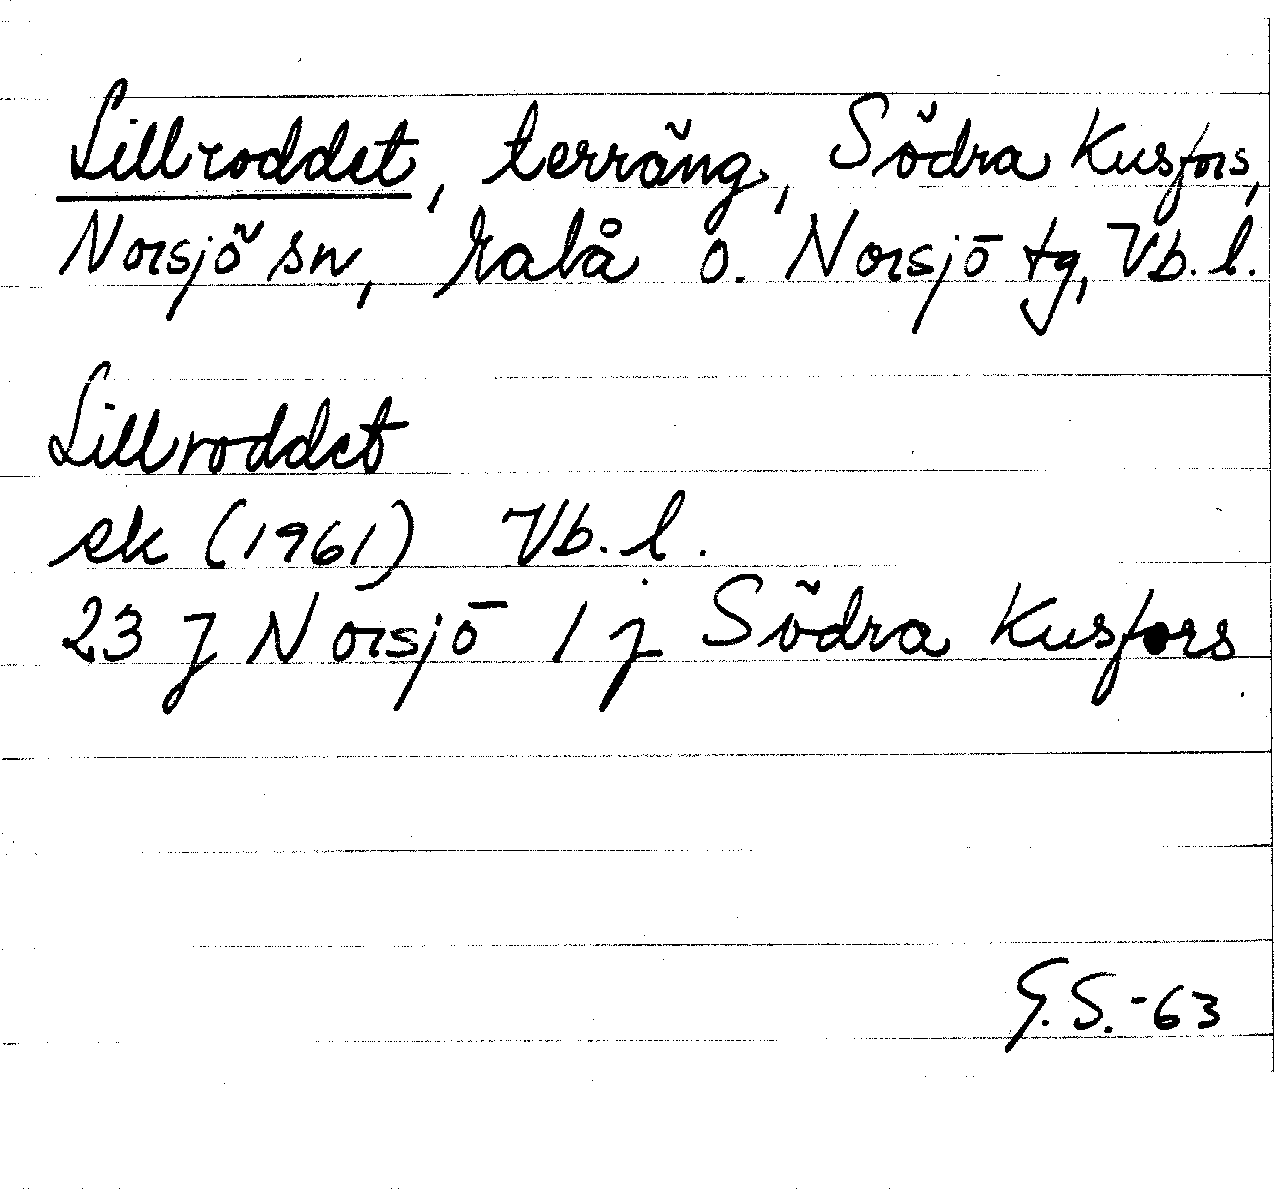 Lillroddet, terräng, Södra Kusfors,
Norsjö sn, Malå o. Norsjö tg, Vb. l.
Lillroddet
ek (1961) Vb. l.
23 J Norsjö 1 j Södra Kusfors
G. S. -63